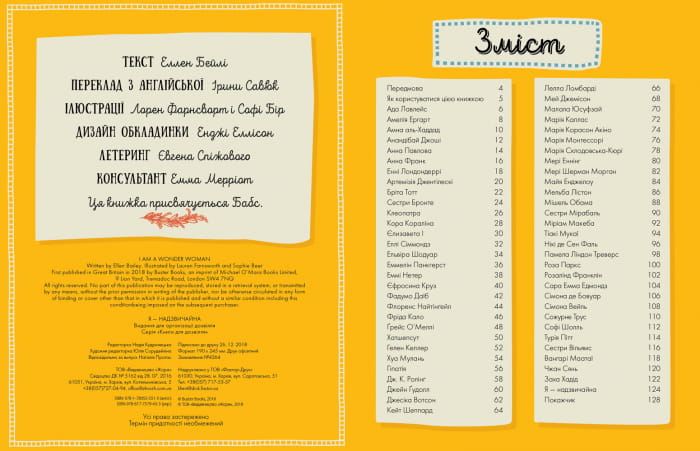 ТЕКСТ Еллен Бейлі
ПЕРЕКЛАД З АНГЛІЙСЬКОЇ Ірини Саввюк
ІЛЮСТРАЦІЇ Лорен Фарнсворт і Софі Бір
ДИЗАЙН ОБКЛАДИНКИ Енджі Еллісон
ЛЕТЕРИНГ Євгена Спіжового
КОНСУЛЬТАНТ Емма Мерріот
Ця книжка присвячується Бабс.
I AM A WONDER WOMAN
Written by Ellen Bailey, Illustrated by Lauren Farnsworth and Sophie Beer
First published in Great Britain in 2018 by Buster Books, an imprint of Michael O'Mara Books Limited,
9 Lion Yard, Tremadoc Road, London SW4 7NQ
All rights reserved. No part of this publication may be reproduced, stored in a retrieval system, or transmitted
by any means, without the prior permission in writing of the publisher, nor be otherwise circulated in any form
of binding or cover other than that in which it is published and without a similar condition including this
condition being imposed on the subsequent purchaser.
Я — НАДЗВИЧАЙНА
Видання для організації дозвілля
Серія «Книги для дозвілля»
Підписано до друку 26. 12. 2018
Формат 190 x 245 мм. Друк офсетний
Замовлення №4364
ТОВ «Видавництво «Жорж»
Усі права застережено
Термін придатності необмежений
Зміст
Передмова 4
Як користуватися цією книжкою 5
Ада Лавлейс 6
Амелія Ергарт 8
Амна аль-Хаддад 10
Анандібай Джоші 12
Анна Павлова 14
Анна Франк 16
Енні Лондондеррі 18
Артемізія Джентілескі 20
Бріта Тотт 22
Сестри Бронте 24
Клеопатра 26
Кора Кораліна 28
Єлизавета І 30
Еллі Сіммондз 32
Ельвіра Шодуар 34
Еммелін Панкгерст 36
Еммі Нетер 38
Єфросина Круз 40
Фадумо Даїб 42
Флоренс Найтінгейл 44
Фріда Кало 46
Ґрейс О'Меллі 48
Хатшепсут 50
Гелен Келлер 52
Хуа Мулань 54
Гіпатія 56
Дж. К. Ролінг 58
Джейн Ґудолл 60
Джесіка Вотсон 62
Кейт Шеппард 64
Лелла Ломбарді 66
Мей Джемісон 68
Малала Юсуфзай 70
Марія Каллас 72
Марія Корасон Акіно 74
Марія Монтессорі 76
Марія Склодовська-Кюрі 78
Мері Еннінг 80
Мері Шерман Морган 82
Майя Енджелоу 84
Мельба Лістон 86
Мішель Обама 88
Сестри Мірабаль 90
Міріам Макеба 92
Тіакі Мукаї 94
Нікі де Сен Фаль 96
Памела Ліндон Треверс 98
Роза Паркс 100
Розалінд Франклін 102
Сара Емма Едмондз 104
Сімона де Бовуар 106
Сімона Вейль 108
Сожурне Трус 110
Софі Шолль 112
Турія Пітт 114
Сестри Вільямс 116
Вангарі Маатаі 118
Чжан Сянь 120
Заха Хадід 122
Я — надзвичайна 124
Покажчик 128